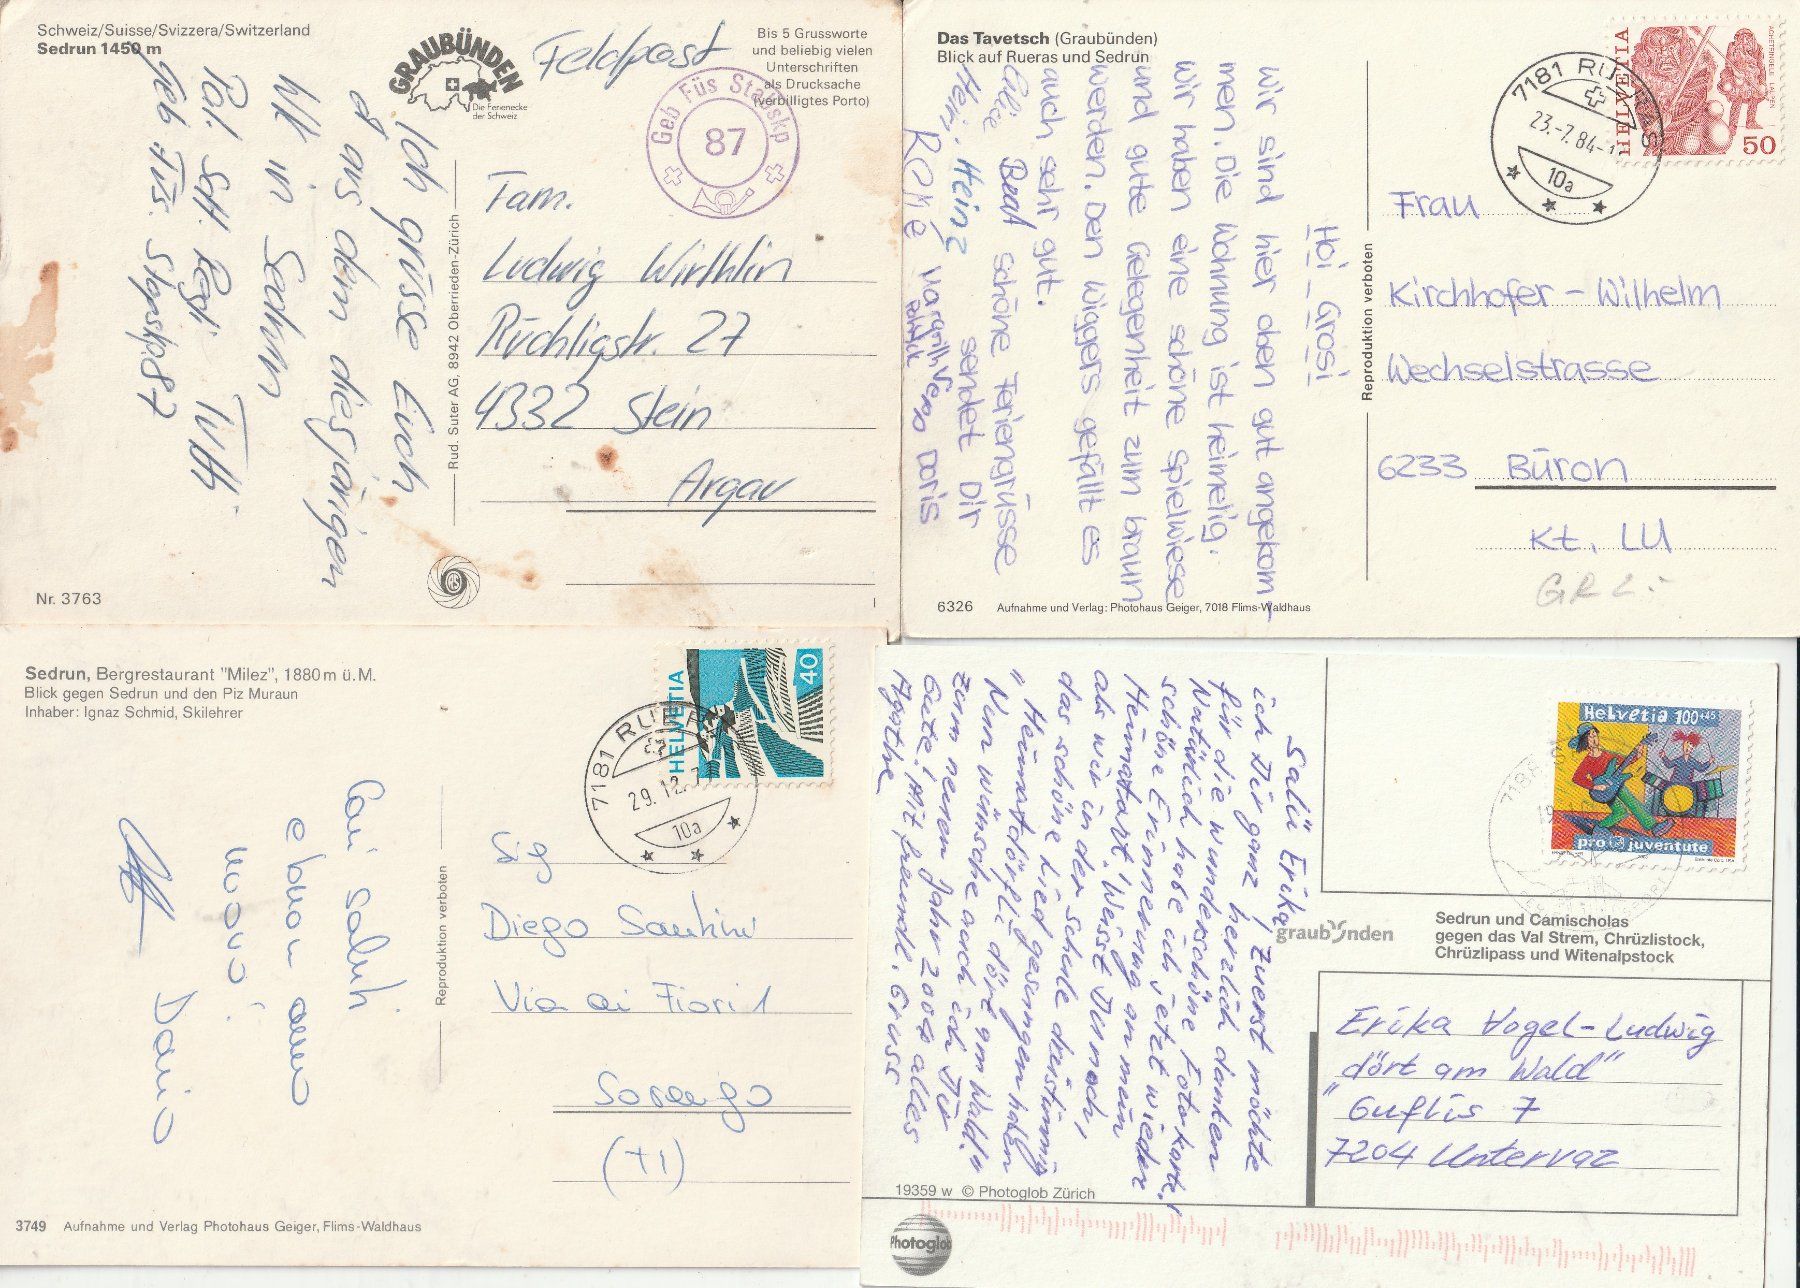 Schweiz/Suisse/Svizzera/Switzerland
Sedrun 1450 m
GRAUBÜNDEN
Die Ferienecke
der Schweiz
Feldpost
Bis 5 Grussworte
und beliebig vielen
Unterschriften
als Drucksache
(verbilligtes Porto)
Geb Füs Stabskp
87
Ich grüsse Euch
aus dem diesjährigen
WK in Sedrun
Geb. Füs. Stabskp 87
Rud. Suter AG, 8942 Oberrieden-Zürich
Fam.
Ludwig Wirthlin
Rüchligstr. 27
4332 Stein
Argau
Nr. 3763
Das Tavetsch (Graubünden)
Blick auf Rueras und Sedrun
HELVETIA
50
7181 RUERAS
23.-7.84
10a
Hoi Grosi
Wir sind hier oben gut angekom-
men. Die Wohnung ist heimelig.
Wir haben eine schöne Spielwiese
und gute Gelegenheit zum braun
werden. Den Wiggers gefällt es
auch sehr gut.
schöne Feriengrüsse
sendet Dir
Beat
Heinz
René
Vreni Doris
Reproduktion verboten
Frau
Kirchhofer-Wilhelm
Wechselstrasse
6233 Büron
Kt. LU
6326 Aufnahme und Verlag: Photohaus Geiger, 7018 Flims-Waldhaus
Sedrun, Bergrestaurant "Milez", 1880 m ü. M.
Blick gegen Sedrun und den Piz Muraun
Inhaber: Ignaz Schmid, Skilehrer
HELVETIA
40
7181 RUERAS
29.12.7
10a
Cari saluti
e buon anno
nuovo!
Dario
Reproduktion verboten
Sig
Diego Santini
Via ai Fiori 1
Sorengo
(TI)
3749 Aufnahme und Verlag Photohaus Geiger, Flims-Waldhaus
Helvetia 100+45
pro juventute
Salü Erika, zuerst möchte
ich Dir ganz herzlich danken
für die wunderschöne Fotokarte!
Natürlich habe ich jetzt wieder
schöne Erinnerung an mein
Heimatort. Weisst Du noch,
als wir in der Schule dreistimmig
das schöne Lied gesungen haben
"Heimatdörfli dört am Wald."
Nun wünsche auch ich Dir
zum neuen Jahr 2000 alles
Gute! Mit freundl. Gruss
Agathe
graubünden
Sedrun und Camischolas
gegen das Val Strem, Chrüzlistock,
Chrüzlipass und Witenalpstock
Erika Vogel-Ludwig
dört am Wald"
"Guflis 7
7204 Untervaz
19359 w © Photoglob Zürich
Photoglob